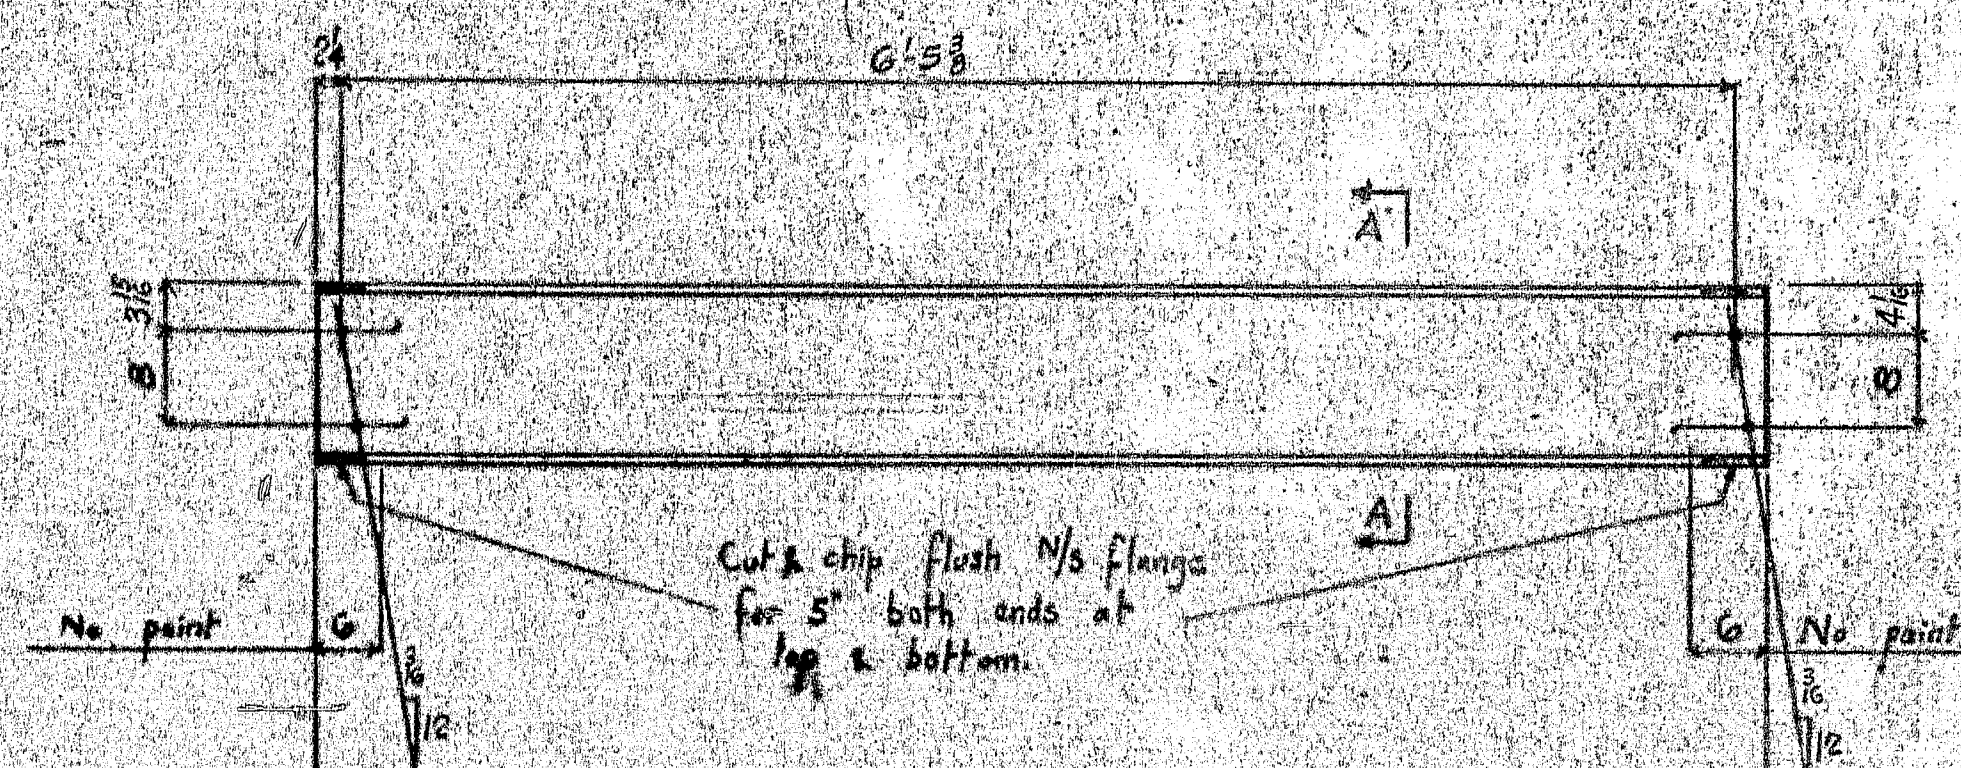 2 1/4
6'-5 3/8
A
3 15/16
8
4 1/16
8
A
Cut & chip flush N/S flange
for 5" both ends at
top & bottom.
No paint 6
6 No paint
3/16
12
3/16
12